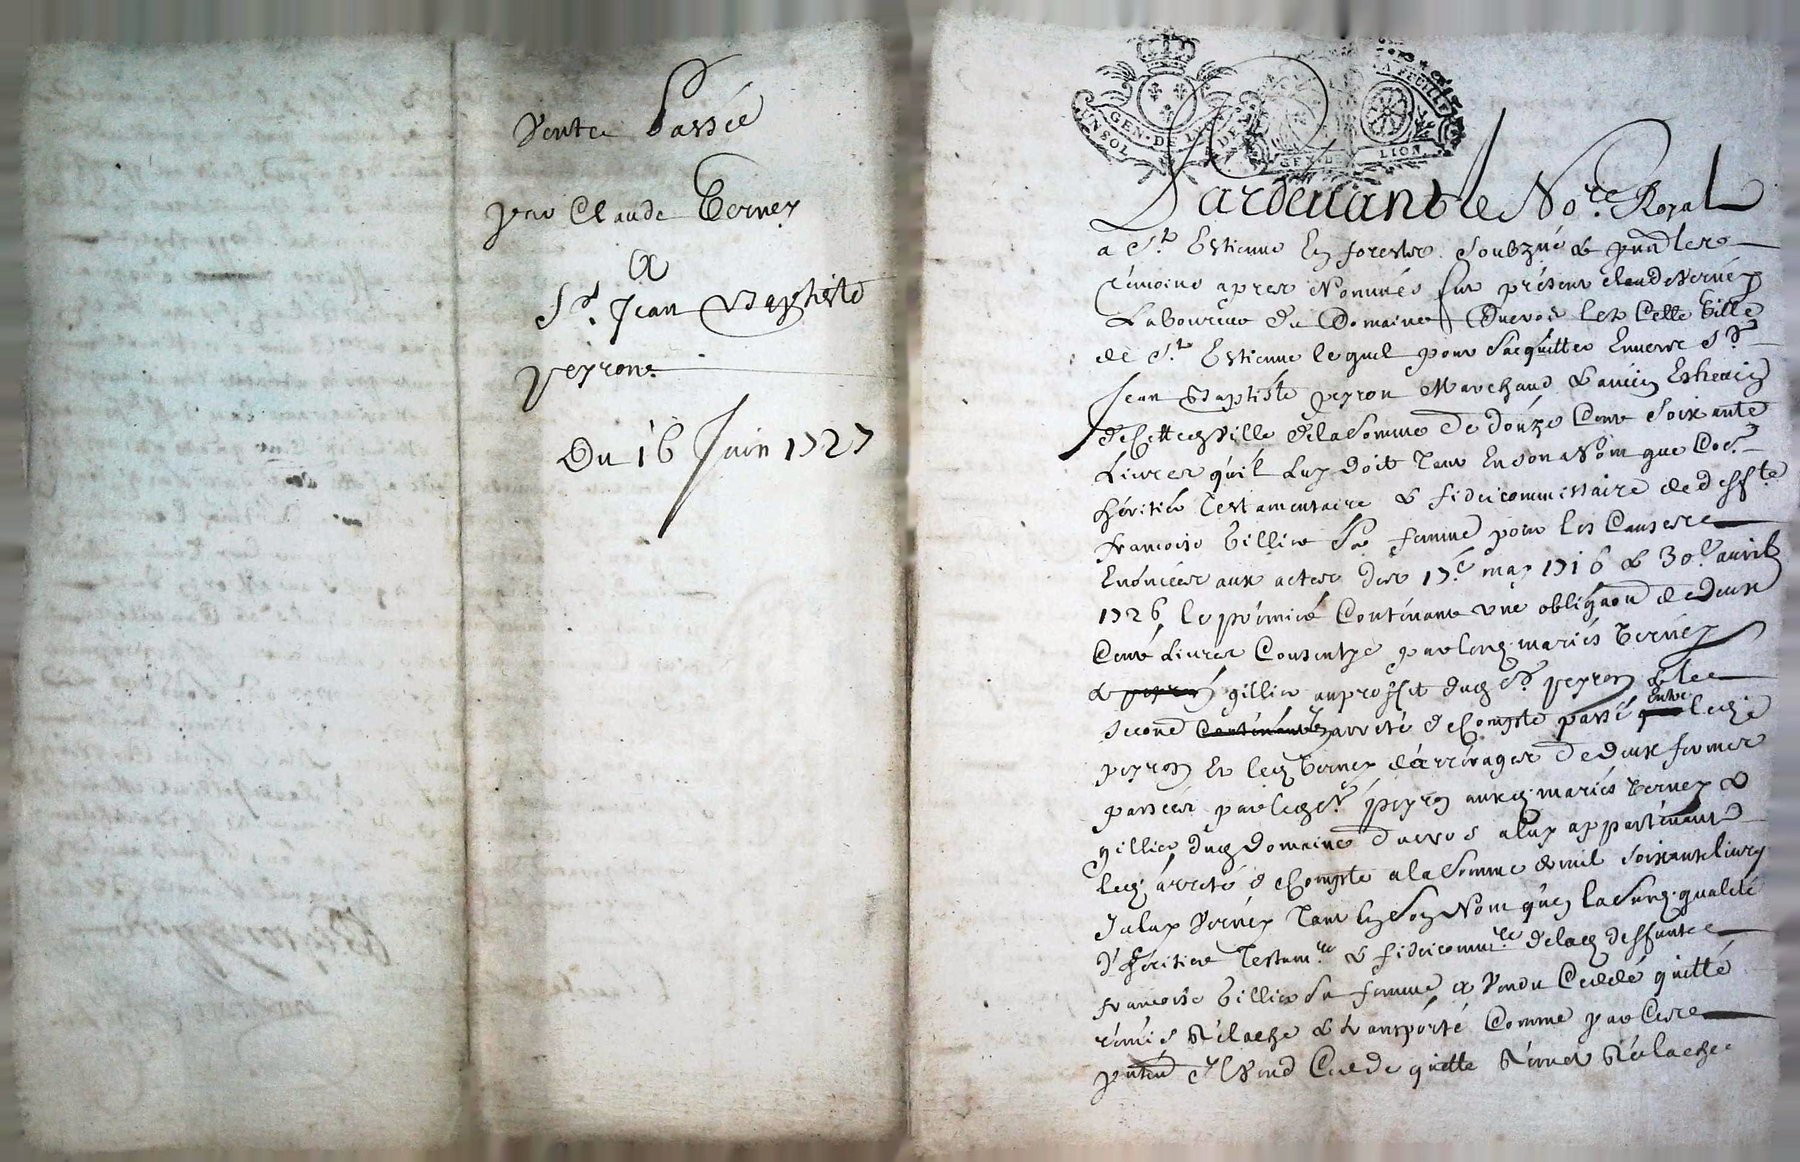 Vente Passée
par Claude Verney
a
Sr. Jean Baptiste
peyron.
Du 16 Juin 1727
GEN. DE LION
GEN. DE LION
Pardevant le No.re Royal
a St. Estienne En forestz soubzné & pnts les
témoins apres Nommés fut présent claude Verney
Laboureur du Domaine Duvos Lez Cette Ville
de St. Estienne lequel pour sacquitter Envers Sr.
Jean Baptiste peyron Marchand & ancien Eschevin
de Cette Ville de la Somme de douze Cent Soixante
Livres qu'il Luy doit tant En son Nom que Co.e
héritier testamentaire & fideicommissaire de deffte
francoise Gillier Sa femme pour les Causes
Enoncées aux actes des 17.e may 1716 & 30.e avril
1726, le premier Contenant une obligaon de deux
Cent Livres Consentye par les mariés Verney
& gillier au proffit dud Sr. peyron & le
Second arreté de Compte passé Entre led
peyron Et led Verney darrérages de deux fermes
passées par led Sr. peyron aux mariés Verney &
gillier dud domaine Duvos a luy appartenant
led arreté de Compte a la Somme de mil soixante livres
Jceluy Verney tant En Son Nom qu'en la Susd. qualité
d'héritier Testam.re & fideicommi.re de lad deffunte
francoise Gillier Sa femme a Vendu Ceddé quitté
rémis Relaché & transporté Comme par Ces
pntes Jl Vend Cedde quitte Remet Relache